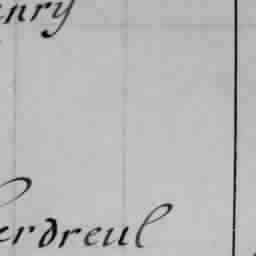 enry
erdreul